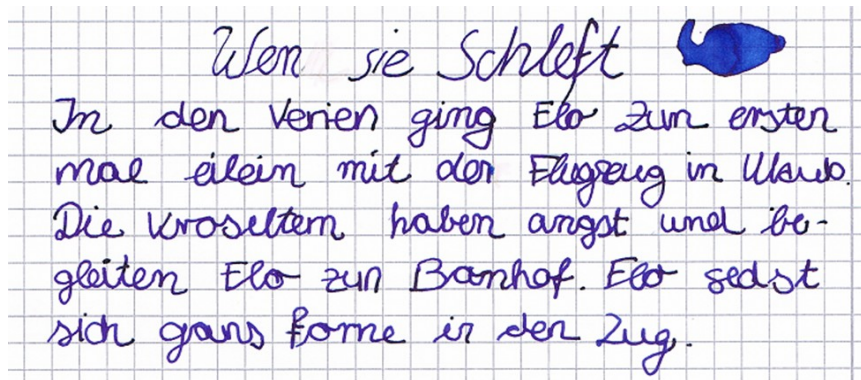 Wen sie Schleft
In den Verien ging Elo zum ersten
mal eilein mit der Flugzeug in Ulaub.
Die kroseltern haben angst und be-
gleiten Elo zun Banhof. Elo sedst
sich gans forne in den Zug.